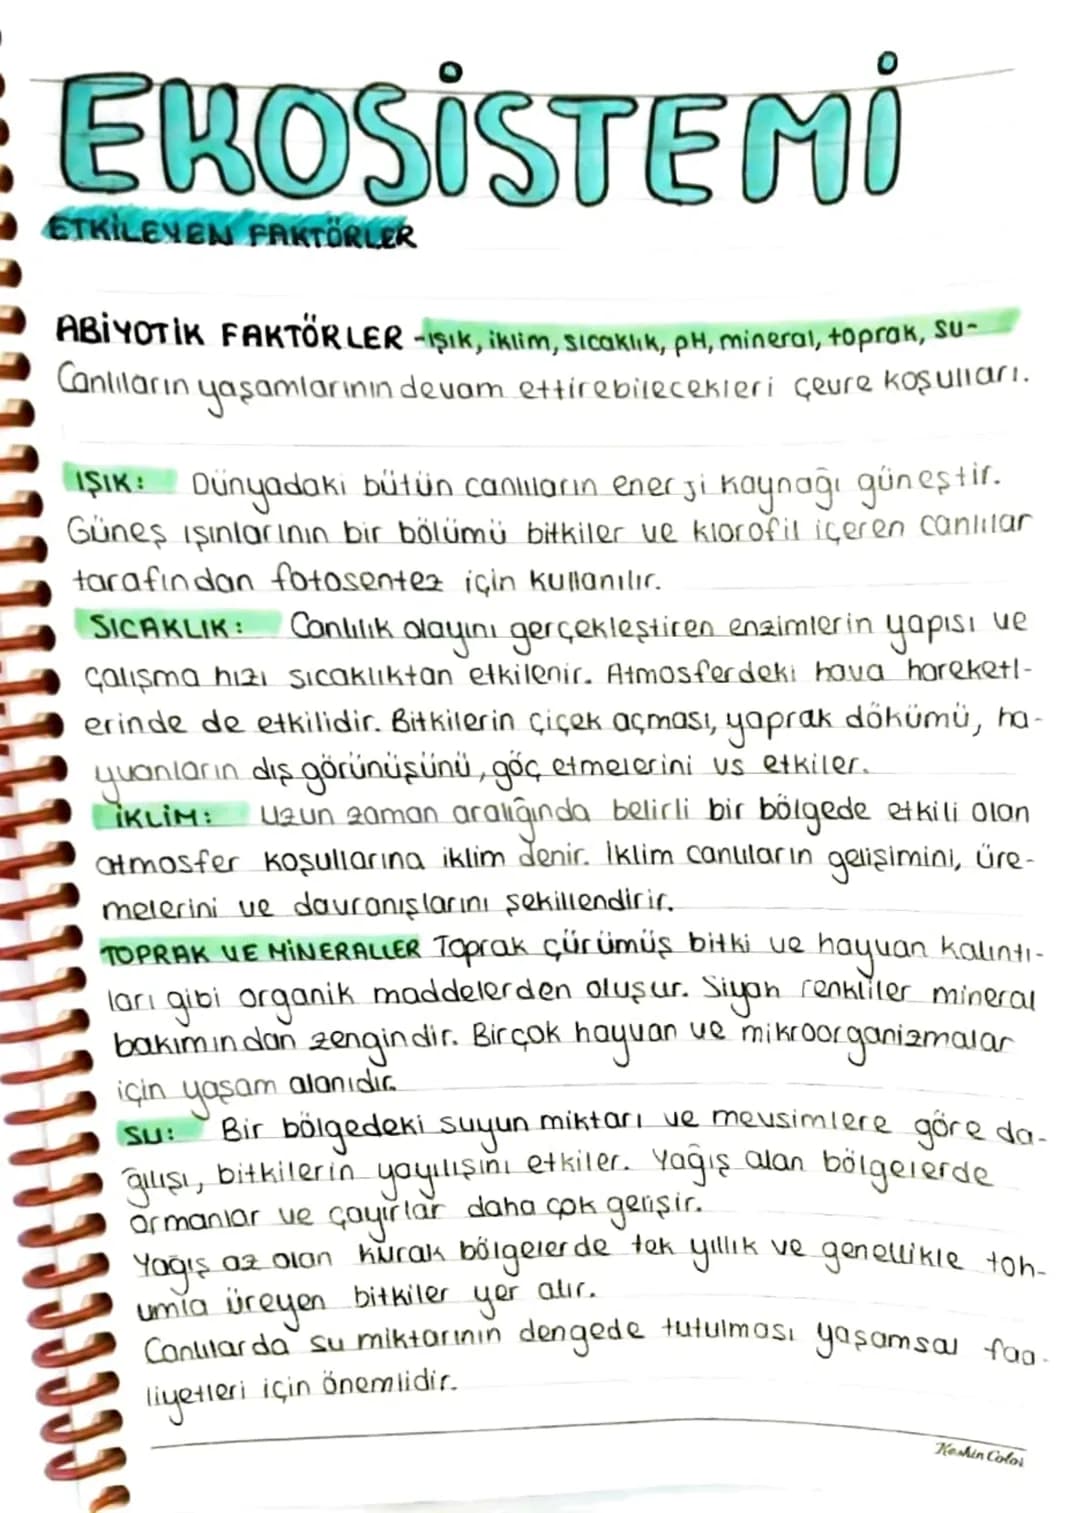 EKOSİSTEMİ
ETKİLEYEN FAKTÖRLER
ABİYOTİK FAKTÖRLER -ışık, iklim, sıcaklık, pH, mineral, toprak, su-
Canlıların yaşamlarının devam ettirebilecekleri çevre koşulları.
IŞIK: Dünyadaki bütün canlıların enerji kaynağı güneştir.
Güneş ışınlarının bir bölümü bitkiler ve klorofil içeren canlılar
tarafından fotosentez için kullanılır.
SICAKLIK: Canlılık olayını gerçekleştiren enzimlerin yapısı ve
çalışma hızı sıcaklıktan etkilenir. Atmosferdeki hava hareketl-
erinde de etkilidir. Bitkilerin çiçek açması, yaprak dökümü, ha-
yvanların dış görünüşünü, göç etmelerini vs etkiler.
İKLİM: Uzun zaman aralığında belirli bir bölgede etkili olan
atmosfer koşullarına iklim denir. İklim canlıların gelişimini, üre-
melerini ve davranışlarını şekillendirir.
TOPRAK VE MİNERALLER Toprak çürümüş bitki ve hayvan kalıntı-
ları gibi organik maddelerden oluşur. Siyah renkliler mineral
bakımından zengindir. Birçok hayvan ve mikroorganizmalar
için yaşam alanıdır.
SU: Bir bölgedeki suyun miktarı ve mevsimlere göre da-
ğılışı, bitkilerin yayılışını etkiler. Yağış alan bölgelerde
ormanlar ve çayırlar daha çok gelişir.
Yağış az olan kurak bölgelerde tek yıllık ve genellikle toh-
umla üreyen bitkiler yer alır.
Canlılarda su miktarının dengede tutulması yaşamsal faa-
liyetleri için önemlidir.
Keskin Color